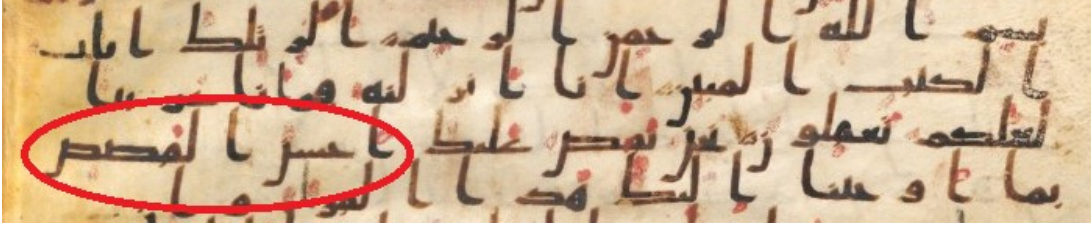 بسم الله الرحمن الرحيم الر تلك ايات
الكتب المبين انا انزلنه قرانا عربيا
لعلكم تعقلون نحن نقص عليك احسن القصص
بما اوحينا اليك هذا القران وا